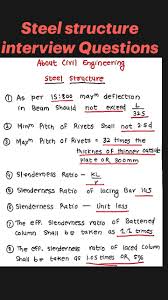 Steel structure
interview Questions
About Civil Engineering
Steel Structure
① As per IS:800 maxm deflection
in Beam should not exceed L/325
② Minm Pitch of Rivets Shall not 2.5d
③ Maxm Pitch of Rivets = 32 times the
thickness of thinner outside
plate OR 300mm
④ Slenderness Ratio - KL/r
⑤ Slenderness Ratio of lacing Bar 145
⑥ Slenderness Ratio - Unit less
⑦ The eff. Slenderness ratio of Battened
column Shall be taken as 1.1 times
⑧ The eff. Slenderness ratio of laced column
Shall be taken as 1.05 times OR 5%